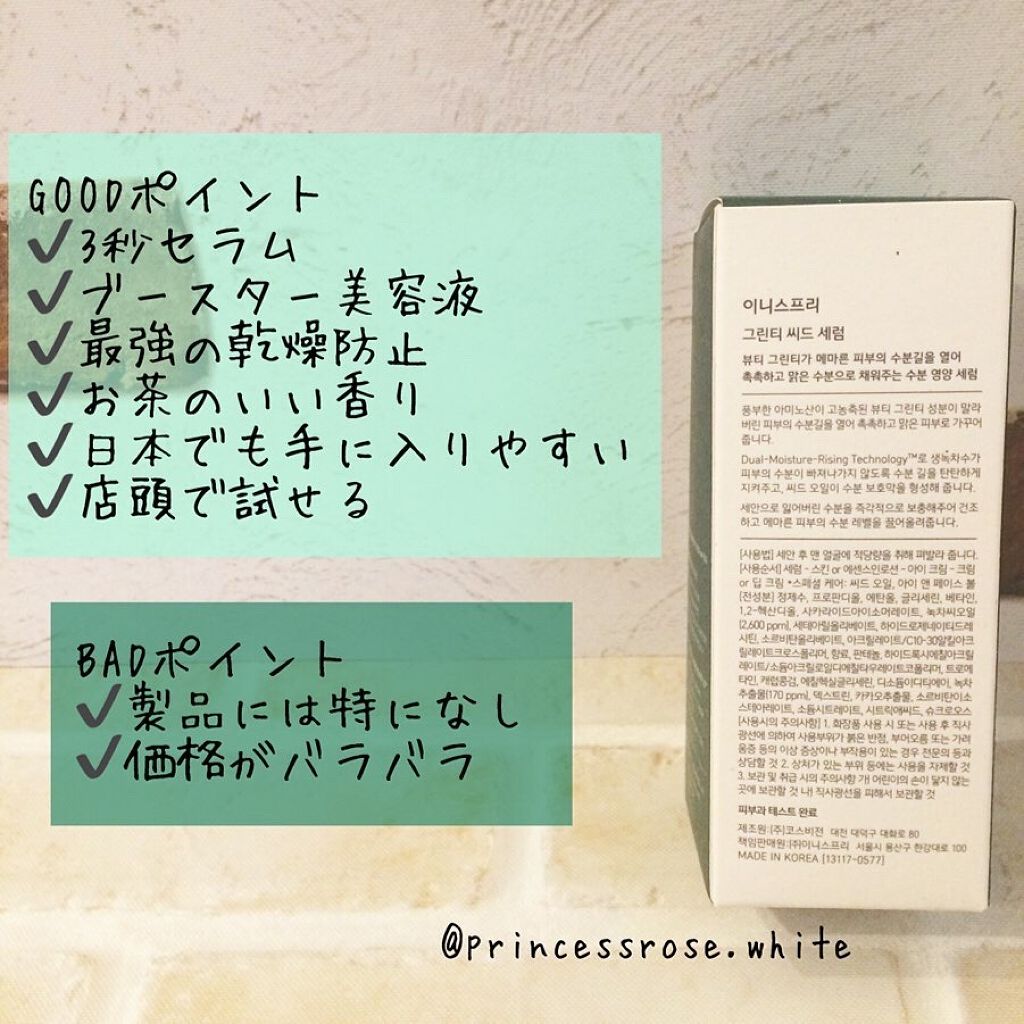 GOODポイント
✔3秒セラム
✔ブースター美容液
✔最強の乾燥防止
✔お茶のいい香り
✔日本でも手に入りやすい
✔店頭で試せる
BADポイント
✔製品には特になし
✔価格がバラバラ
이니스프리
그린티 씨드 세럼
뷰티 그린티가 메마른 피부의 수분길을 열어
촉촉하고 맑은 수분으로 채워주는 수분 영양 세럼
풍부한 아미노산이 고농축된 뷰티 그린티 성분이 말라
버린 피부의 수분길을 열어 촉촉하고 맑은 피부로 가꾸어
줍니다.
Dual-Moisture-Rising Technology™로 생녹차수가
피부의 수분이 빠져나가지 않도록 수분 길을 탄탄하게
지켜주고, 씨드 오일이 수분 보호막을 형성해 줍니다.
세안으로 잃어버린 수분을 즉각적으로 보충해주어 건조
하고 메마른 피부의 수분 레벨을 끌어올려줍니다.
[사용법] 세안 후 맨 얼굴에 적당량을 취해 펴발라 줍니다.
[사용순서] 세럼 - 스킨 or 에센스인로션 - 아이 크림 - 크림
or 딥 크림 *스페셜 케어: 씨드 오일, 아이 앤 페이스 볼
[전성분] 정제수, 프로판디올, 에탄올, 글리세린, 베타인,
1,2-헥산디올, 사카라이드아이소머레이트, 녹차씨오일
(2,600 ppm), 세테아릴올리베이트, 하이드로제네이티드레
시틴, 소르비탄올리베이트, 아크릴레이트/C10-30알킬아크
릴레이트크로스폴리머, 향료, 판테놀, 하이드록시에틸아크릴
레이트/소듐아크릴로일디메틸타우레이트코폴리머, 트로메
타민, 캐럽콩검, 에틸헥실글리세린, 디소듐이디티에이, 녹차
추출물(170 ppm), 덱스트린, 카카오추출물, 소르비탄이소
스테아레이트, 소듐시트레이트, 시트릭애씨드, 슈크로오스
[사용시의 주의사항] 1. 화장품 사용 시 또는 사용 후 직사
광선에 의하여 사용부위가 붉은 반점, 부어오름 또는 가려
움증 등의 이상 증상이나 부작용이 있는 경우 전문의 등과
상담할 것 2. 상처가 있는 부위 등에는 사용을 자제할 것
3. 보관 및 취급 시의 주의사항 가) 어린이의 손이 닿지 않는
곳에 보관할 것 나) 직사광선을 피해서 보관할 것
피부과 테스트 완료
제조원:(주)코스비전 대전 대덕구 대화로 80
책임판매원:(주)이니스프리 서울시 용산구 한강대로 100
MADE IN KOREA [13117-0577]
@princessrose.white